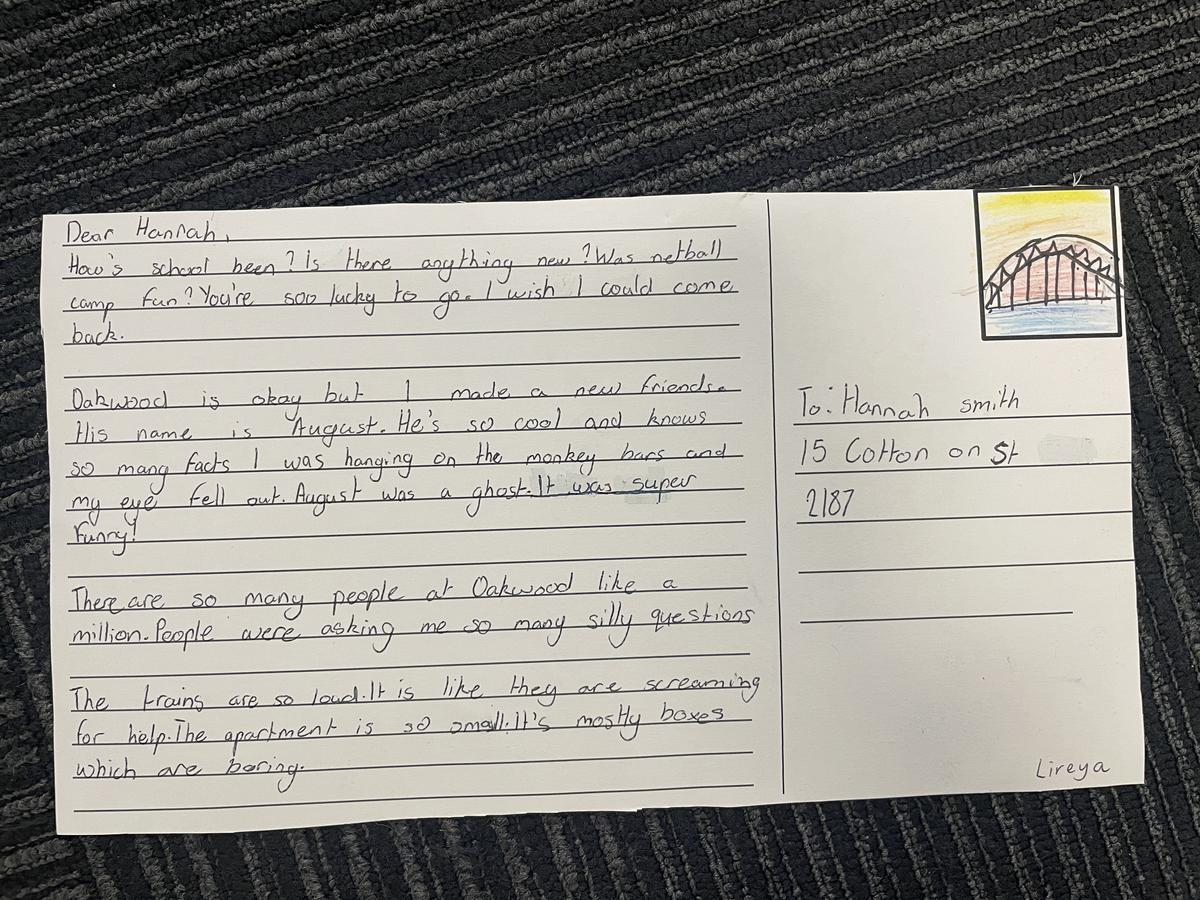 Dear Hannah,
How's school been? Is there anything new? Was netball
camp fun? You're soo lucky to go. I wish I could come
back.
Oakwood is okay but I made a new friends.
His name is August. He's so cool and knows
so many facts I was hanging on the monkey bars and
my eye fell out. August was a ghost. It was super
funny!
There are so many people at Oakwood like a
million. People were asking me so many silly questions
The trains are so loud. It is like they are screaming
for help. The apartment is so small. It's mostly boxes
which are boring.
To: Hannah smith
15 Cotton on St
2187
Lireya